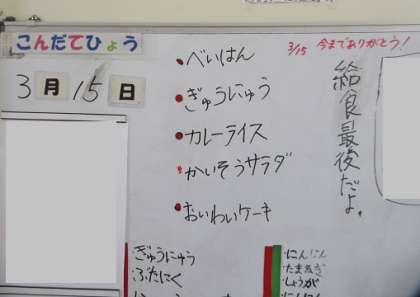 こんだてひょう
3月15日
べいはん
ぎゅうにゅう
カレーライス
かいそうサラダ
おいわいケーキ
3/15 今まで ありがとう!
給食最後だよ。
ぎゅうにゅう
ぶたにく
にんじん
たまねぎ
しょうが